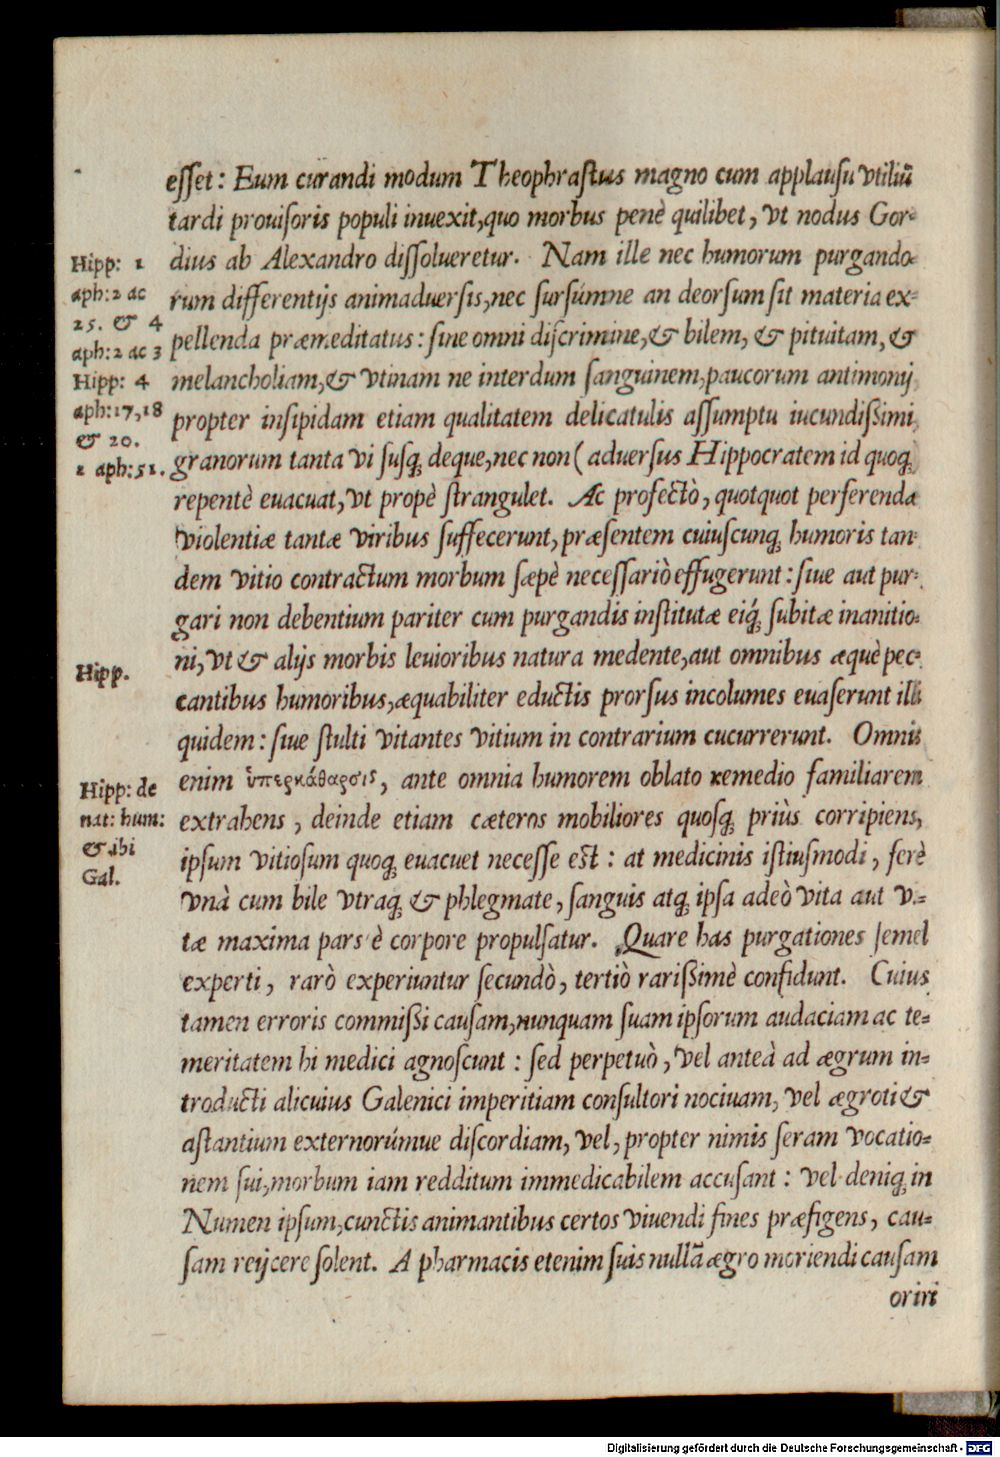 esset: Eum curandi modum Theophrastus magno cum applausu vtiliū
tardi prouisoris populi inuexit, quo morbus penè quilibet, vt nodus Gor-
dius ab Alexandro dissolueretur. Nam ille nec humorum purgando-
rum differentijs animaduersis, nec sursúmne an deorsum sit materia ex-
pellenda præmeditatus: sine omni discrimine, & bilem, & pituitam, &
melancholiam, & vtinam ne interdum sanguinem, paucorum antimonij
propter insipidam etiam qualitatem delicatulis assumptu iucundissimi
granorum tanta vi susq́ deque, nec non (aduersus Hippocratem id quoq́
repentè euacuat, vt propè strangulet. Ac profectò, quotquot perferenda
violentiæ tantæ viribus suffecerunt, præsentem cuiuscunq́ humoris tan-
dem vitio contractum morbum sæpè necessariò effugerunt: siue aut pur-
gari non debentium pariter cum purgandis institutæ eiq́ subitæ inanitio-
ni, vt & alijs morbis leuioribus natura medente, aut omnibus æquè pec-
cantibus humoribus, æquabiliter eductis prorsus incolumes euaserunt illi
quidem: siue stulti vitantes vitium in contrarium cucurrerunt. Omnis
enim ὑπερκάθαρσις, ante omnia humorem oblato remedio familiarem
extrahens, deinde etiam cæteros mobiliores quosq́ priùs corripiens,
ipsum vitiosum quoq́ euacuet necesse est: at medicinis istiusmodi, ferè
vnà cum bile vtraq́ & phlegmate, sanguis atq́ ipsa adeò vita aut v.-
tæ maxima pars è corpore propulsatur. Quare has purgationes semel
experti, rarò experiuntur secundò, tertiò rarissimè confidunt. Cuius
tamen erroris commissi causam, nunquam suam ipsorum audaciam ac te-
meritatem hi medici agnoscunt: sed perpetuò, vel anteà ad ægrum in-
troducti alicuius Galenici imperitiam consultori nociuam, vel ægroti &
astantium externorúmue discordiam, vel, propter nimis seram vocatio-
nem sui, morbum iam redditum immedicabilem accusant: vel deniq́ in
Numen ipsum, cunctis animantibus certos viuendi fines præfigens, cau-
sam reijcere solent. A pharmacis etenim suis nullā ægro moriendi causam
oriri
Hipp: 1
aph: 2 ac
25. & 4
aph: 2 ac 3
Hipp: 4
aph: 17, 18
& 20.
1 aph: 51.
Hipp.
Hipp: de
nat: hum:
& ibi
Gal.
Digitalisierung gefördert durch die Deutsche Forschungsgemeinschaft - DFG